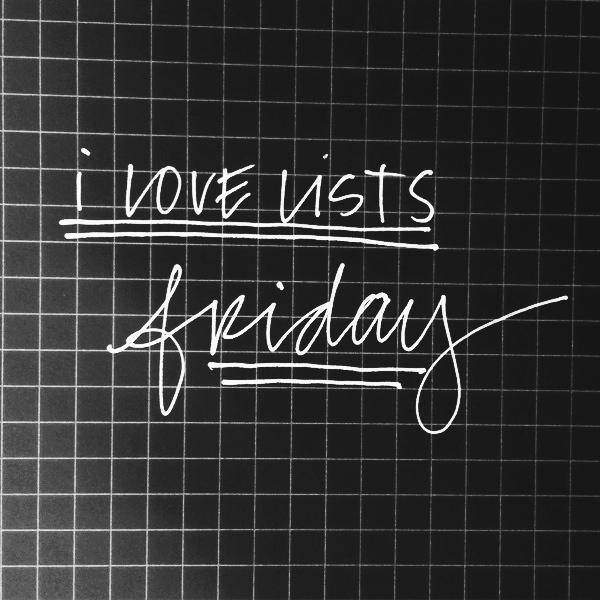 i LOVE LiSTS
friday